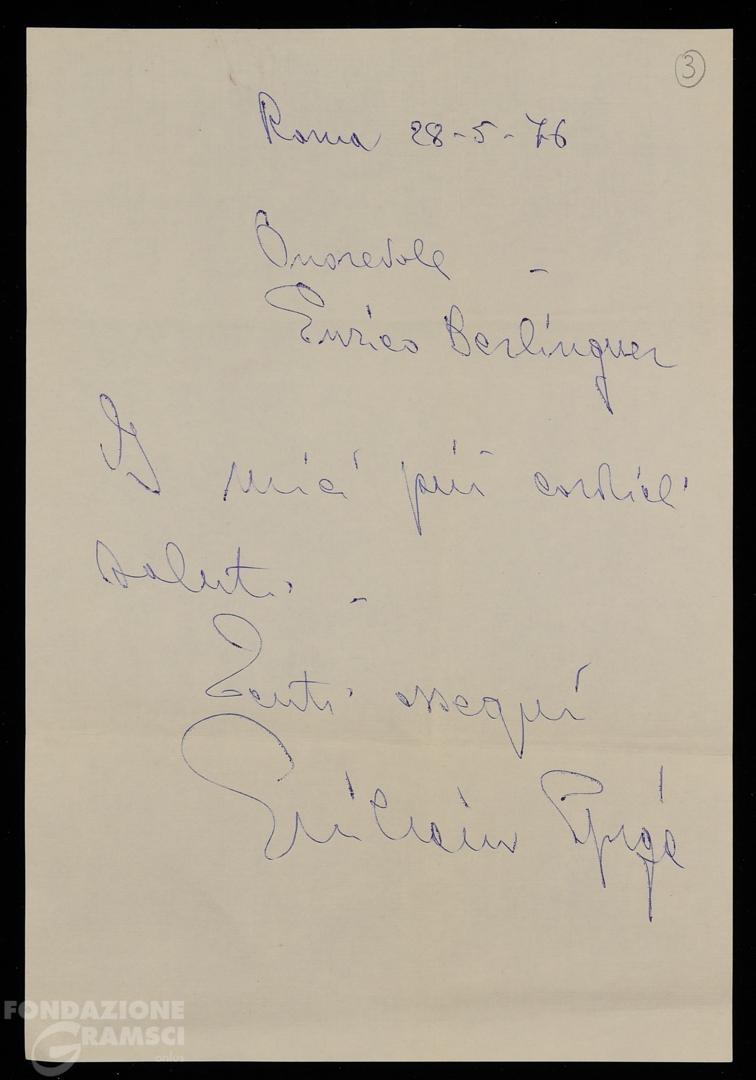 3
Roma 28-5-76
Onorevole -
Enrico Berlinguer
I miei più cordiali
saluti. -
Tanti ossequi
FONDAZIONE
GRAMSCI
onlus